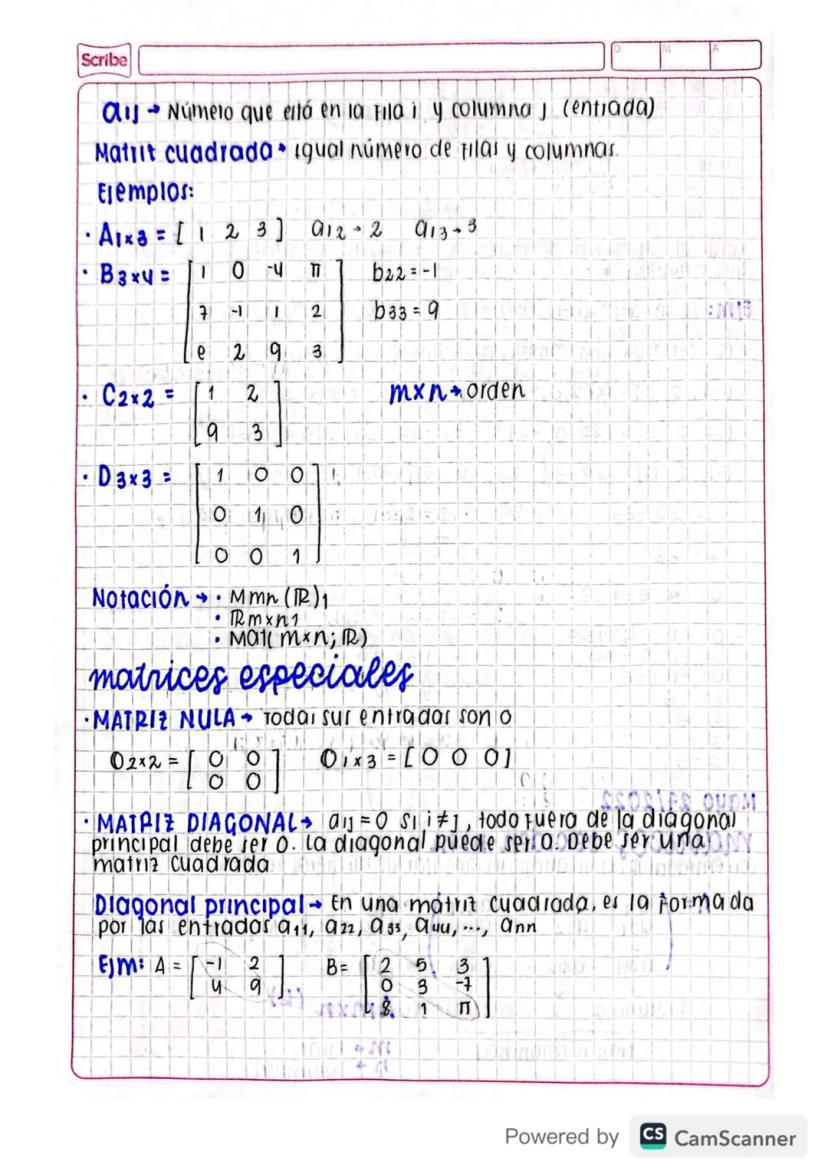 Scribe
D M A
aij → Número que está en la fila i y columna j (entrada)
Matriz cuadrada → igual número de filas y columnas.
Ejemplos:
· A1x3 = [ 1 2 3 ] a12 → 2 a13 → 3
· B3x4 = [ 1 0 -4 π ] b22 = -1
7 -1 1 2 b33 = 9
e 2 9 3
· C2x2 = [ 1 2 ] mxn → orden
9 3
· D3x3 = [ 1 0 0 ]
0 1 0
0 0 1
Notación → · Mmn (ℝ),
· ℝmxn,
· Mat( mxn; ℝ)
matrices especiales
· MATRIZ NULA → Todas sus entradas son 0
O2x2 = [ 0 0 ] O1x3 = [ 0 0 0 ]
0 0
· MATRIZ DIAGONAL → aij = 0 si i ≠ j, todo fuera de la diagonal
principal debe ser 0. La diagonal puede ser 0. Debe ser una
matriz cuadrada
Diagonal principal → En una mátriz cuadrada, es la formada
por las entradas a11, a22, a33, a44, ..., ann
Ejm: A = [ -1 2 ] B = [ 2 5 3 ]
4 9 0 3 -7
8 1 π
Powered by CS CamScanner